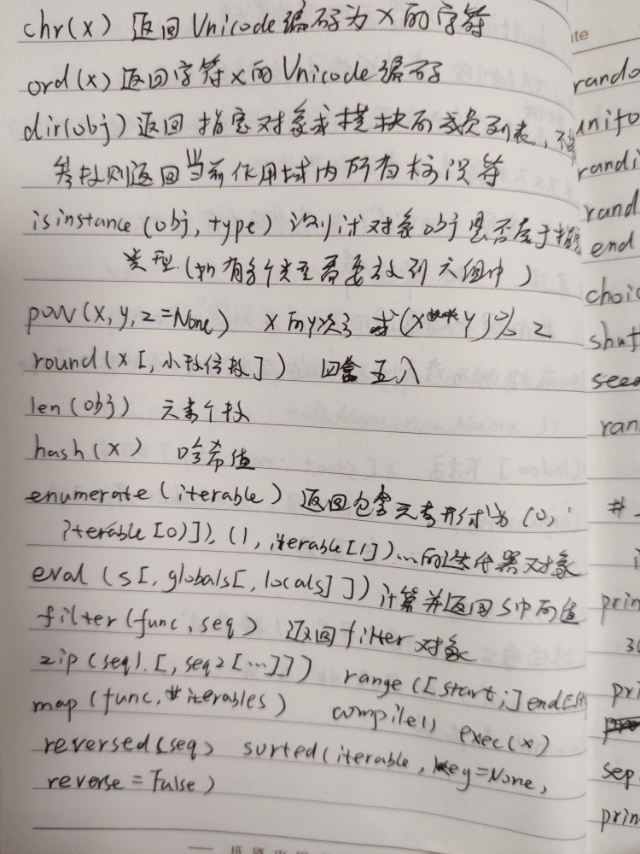 chr(x) 返回Unicode编码为x的字符
ord(x) 返回字符x的Unicode编码
dir(obj) 返回 指定对象或模块的成员列表、不
参数则返回当前作用域内所有标识符
isinstance (obj, type) 测试对象obj是否属于指定
类型.(如有多个类型需要放到元组中)
pow(x, y, z=None) x的y次方 或(x**y)% z
round(x[,小数位数]) 四舍五入
len(obj) 元素个数
hash(x) 哈希值
enumerate(iterable) 返回包含元素形式为 (0,
iterable[0)]), (1, iterable[1])...的迭代器对象
eval (s[, globals[, locals]]) 计算并返回s中的值
filter(func, seq) 返回filter对象
zip(seq1.[, seq2[...]]) range([start,]end[,st
map(func, *iterables) compile() exec(x)
reversed(seq) sorted(iterable, key=None,
reverse=False)
te
rando
unifo
randi
rand
end
choic
shuf
seed
ran
#
prin
30
pri
sep
prin